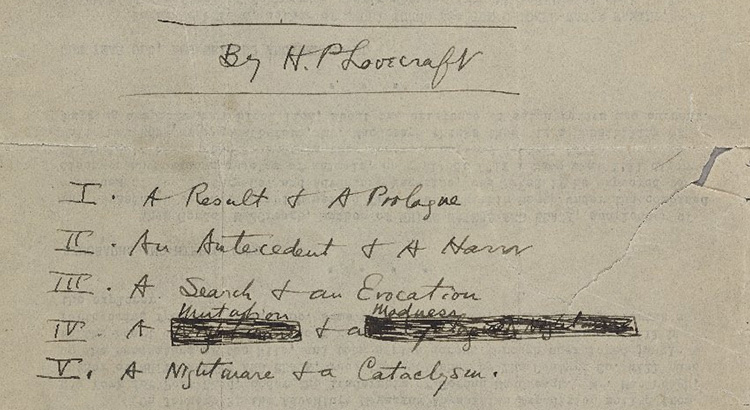 By H. P. Lovecraft
I. A Result & A Prologue
II. An Antecedent & A Horror
III. A Search & an Evocation
Mutation Madness
IV. A & a
V. A Nightmare & a Cataclysm.